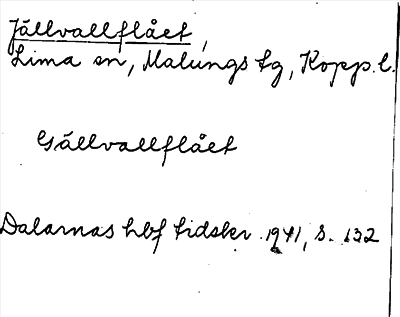 Jällvallflået,
Lima sn, Malungs tg, Kopp. l.
Gällvallflået
Dalarnas hbf tidskr. 1941, s. 132